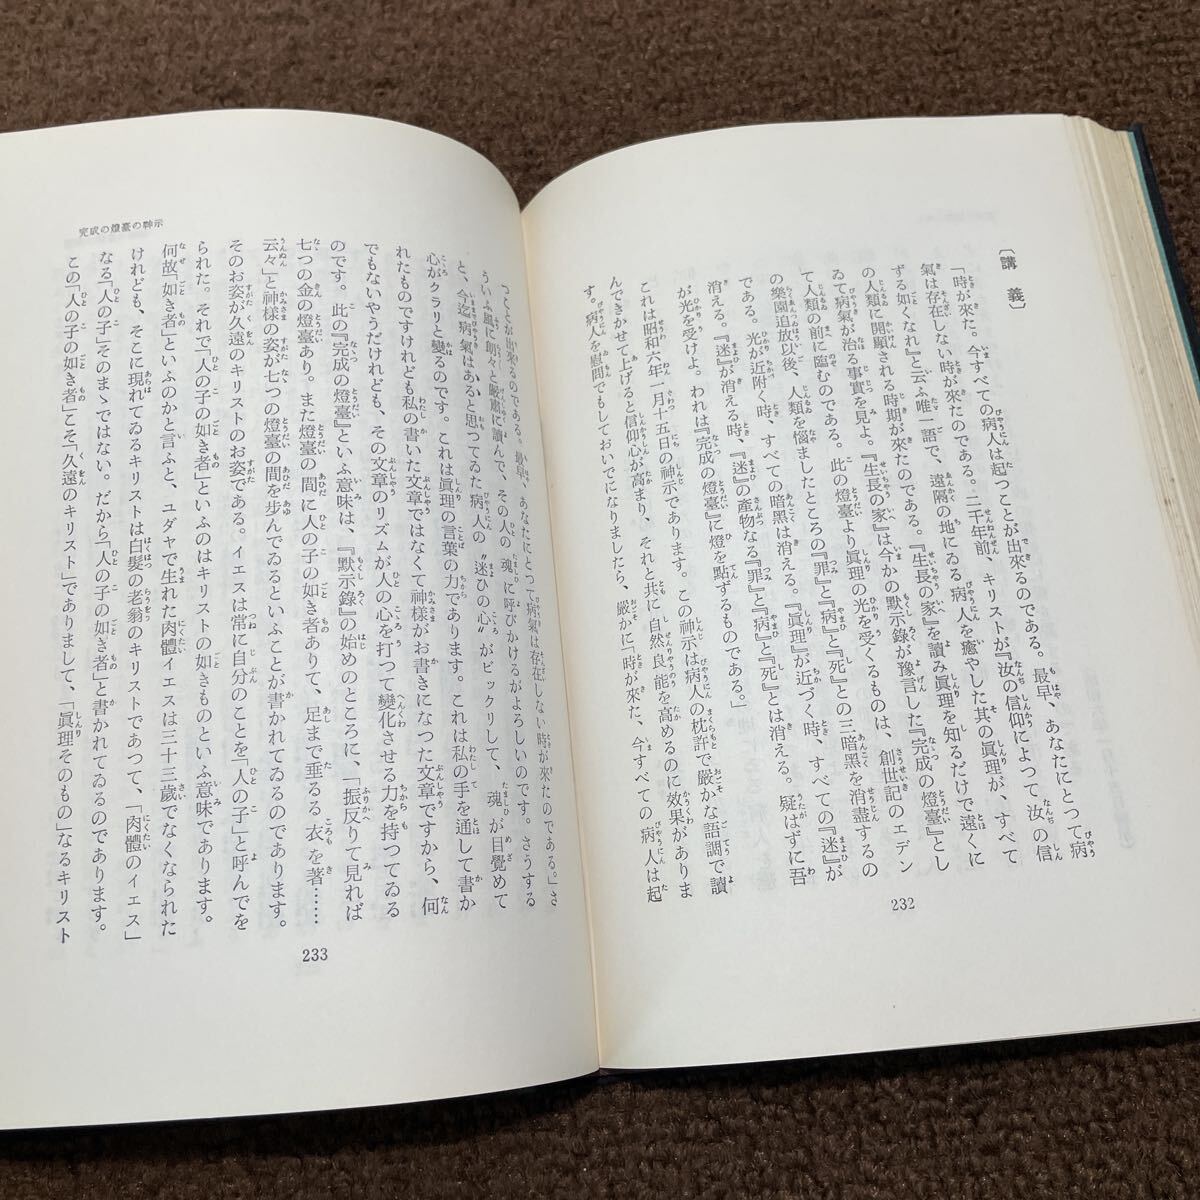 〔講　義〕
「時が來た。今すべての病人は起つことが出來るのである。最早、あなたにとつて病
氣は存在しない時が來たのである。二千年前、キリストが『汝の信仰によつて汝の信
ずる如くなれ』と云ふ唯一語で、遠隔の地にゐる病人を癒やした其の眞理が、すべて
の人類に開顯される時期が來たのである。『生長の家』を讀み眞理を知るだけで遠くに
ゐて病氣が治る事實を見よ。『生長の家』は今かの默示錄が豫言した『完成の燈臺』とし
て人類の前に臨むのである。此の燈臺より眞理の光を受くるものは、創世記のエデン
の樂園追放以後、人類を惱ましたところの『罪』と『病』と『死』との三暗黑を消盡するの
である。光が近附く時、すべての暗黑は消える。『眞理』が近づく時、すべての『迷』が
消える。『迷』が消える時、『迷』の產物なる『罪』と『病』と『死』とは消える。疑はずに吾
が光を受けよ。われは『完成の燈臺』に燈を點ずるものである。」
これは昭和六年一月十五日の神示であります。この神示は病人の枕許で嚴かな語調で讀
んできかせて上げると信仰心が高まり、それと共に自然良能を高めるのに效果がありま
す。病人を慰問でもしておいでになりましたら、嚴かに「時が來た、今すべての病人は起
232
完成の燈臺の神示
つことが出來るのである。最早、あなたにとつて病氣は存在しない時が來たのである。」さ
ういふ風に朗々と嚴肅に讀んで、その人の魂に呼びかけるがよろしいのです。さうする
と、今迄病氣はあると思つてゐた病人の〝迷ひの心〟がビックリして、魂が目覺めて
心がクラリと變るのです。これは眞理の言葉の力であります。これは私の手を通して書か
れたものですけれども私の書いた文章ではなくて神樣がお書きになつた文章ですから、何
でもないやうだけれども、その文章のリズムが人の心を打つて變化させる力を持つてゐる
のです。此の『完成の燈臺』といふ意味は、『默示錄』の始めのところに、「振反りて見れば
七つの金の燈臺あり。また燈臺の間に人の子の如き者ありて、足まで垂るる衣を著……
云々」と神樣の姿が七つの燈臺の間を步んでゐるといふことが書かれてゐるのであります。
そのお姿が久遠のキリストのお姿である。イエスは常に自分のことを「人の子」と呼んでを
られた。それで「人の子の如き者」といふのはキリストの如きものといふ意味であります。
何故「如き者」といふのかと言ふと、ユダヤで生れた肉體イエスは三十三歲でなくなられた
けれども、そこに現れてゐるキリストは白髮の老翁のキリストであつて、「肉體のイエス」
なる「人の子」そのまゝではない。だから「人の子の如き者」と書かれてゐるのであります。
この「人の子の如き者」こそ「久遠のキリスト」でありまして、「眞理そのもの」なるキリスト
233